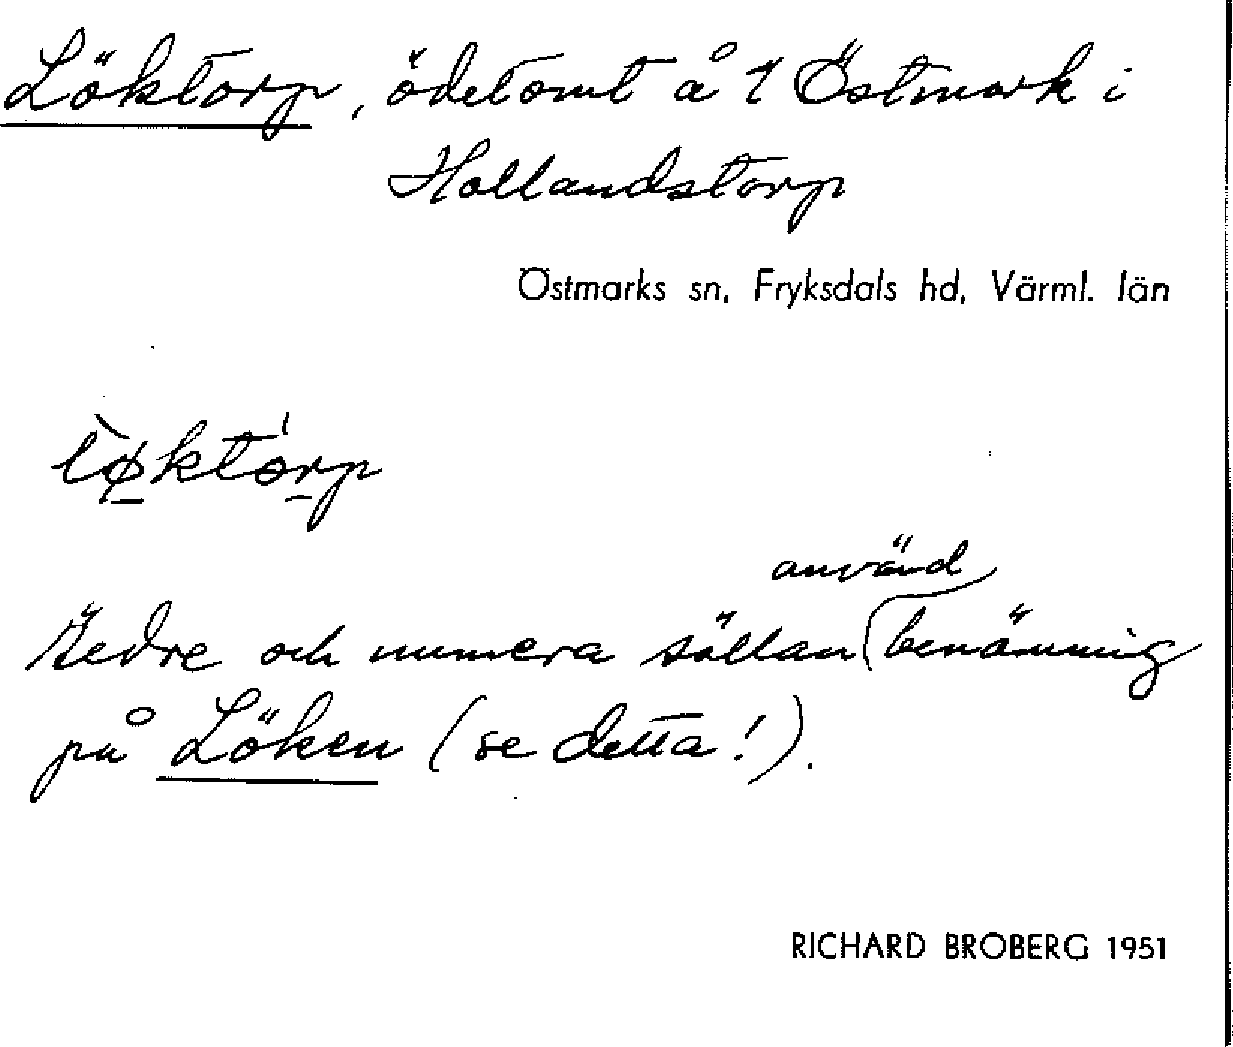 Löktorp, ödetomt å 1 Östmark i
Hollandstorp
Östmarks sn, Fryksdals hd, Värml. län
løktorp
Äldre och numera sällan använd benämning
på Löken (se detta!).
RICHARD BROBERG 1951